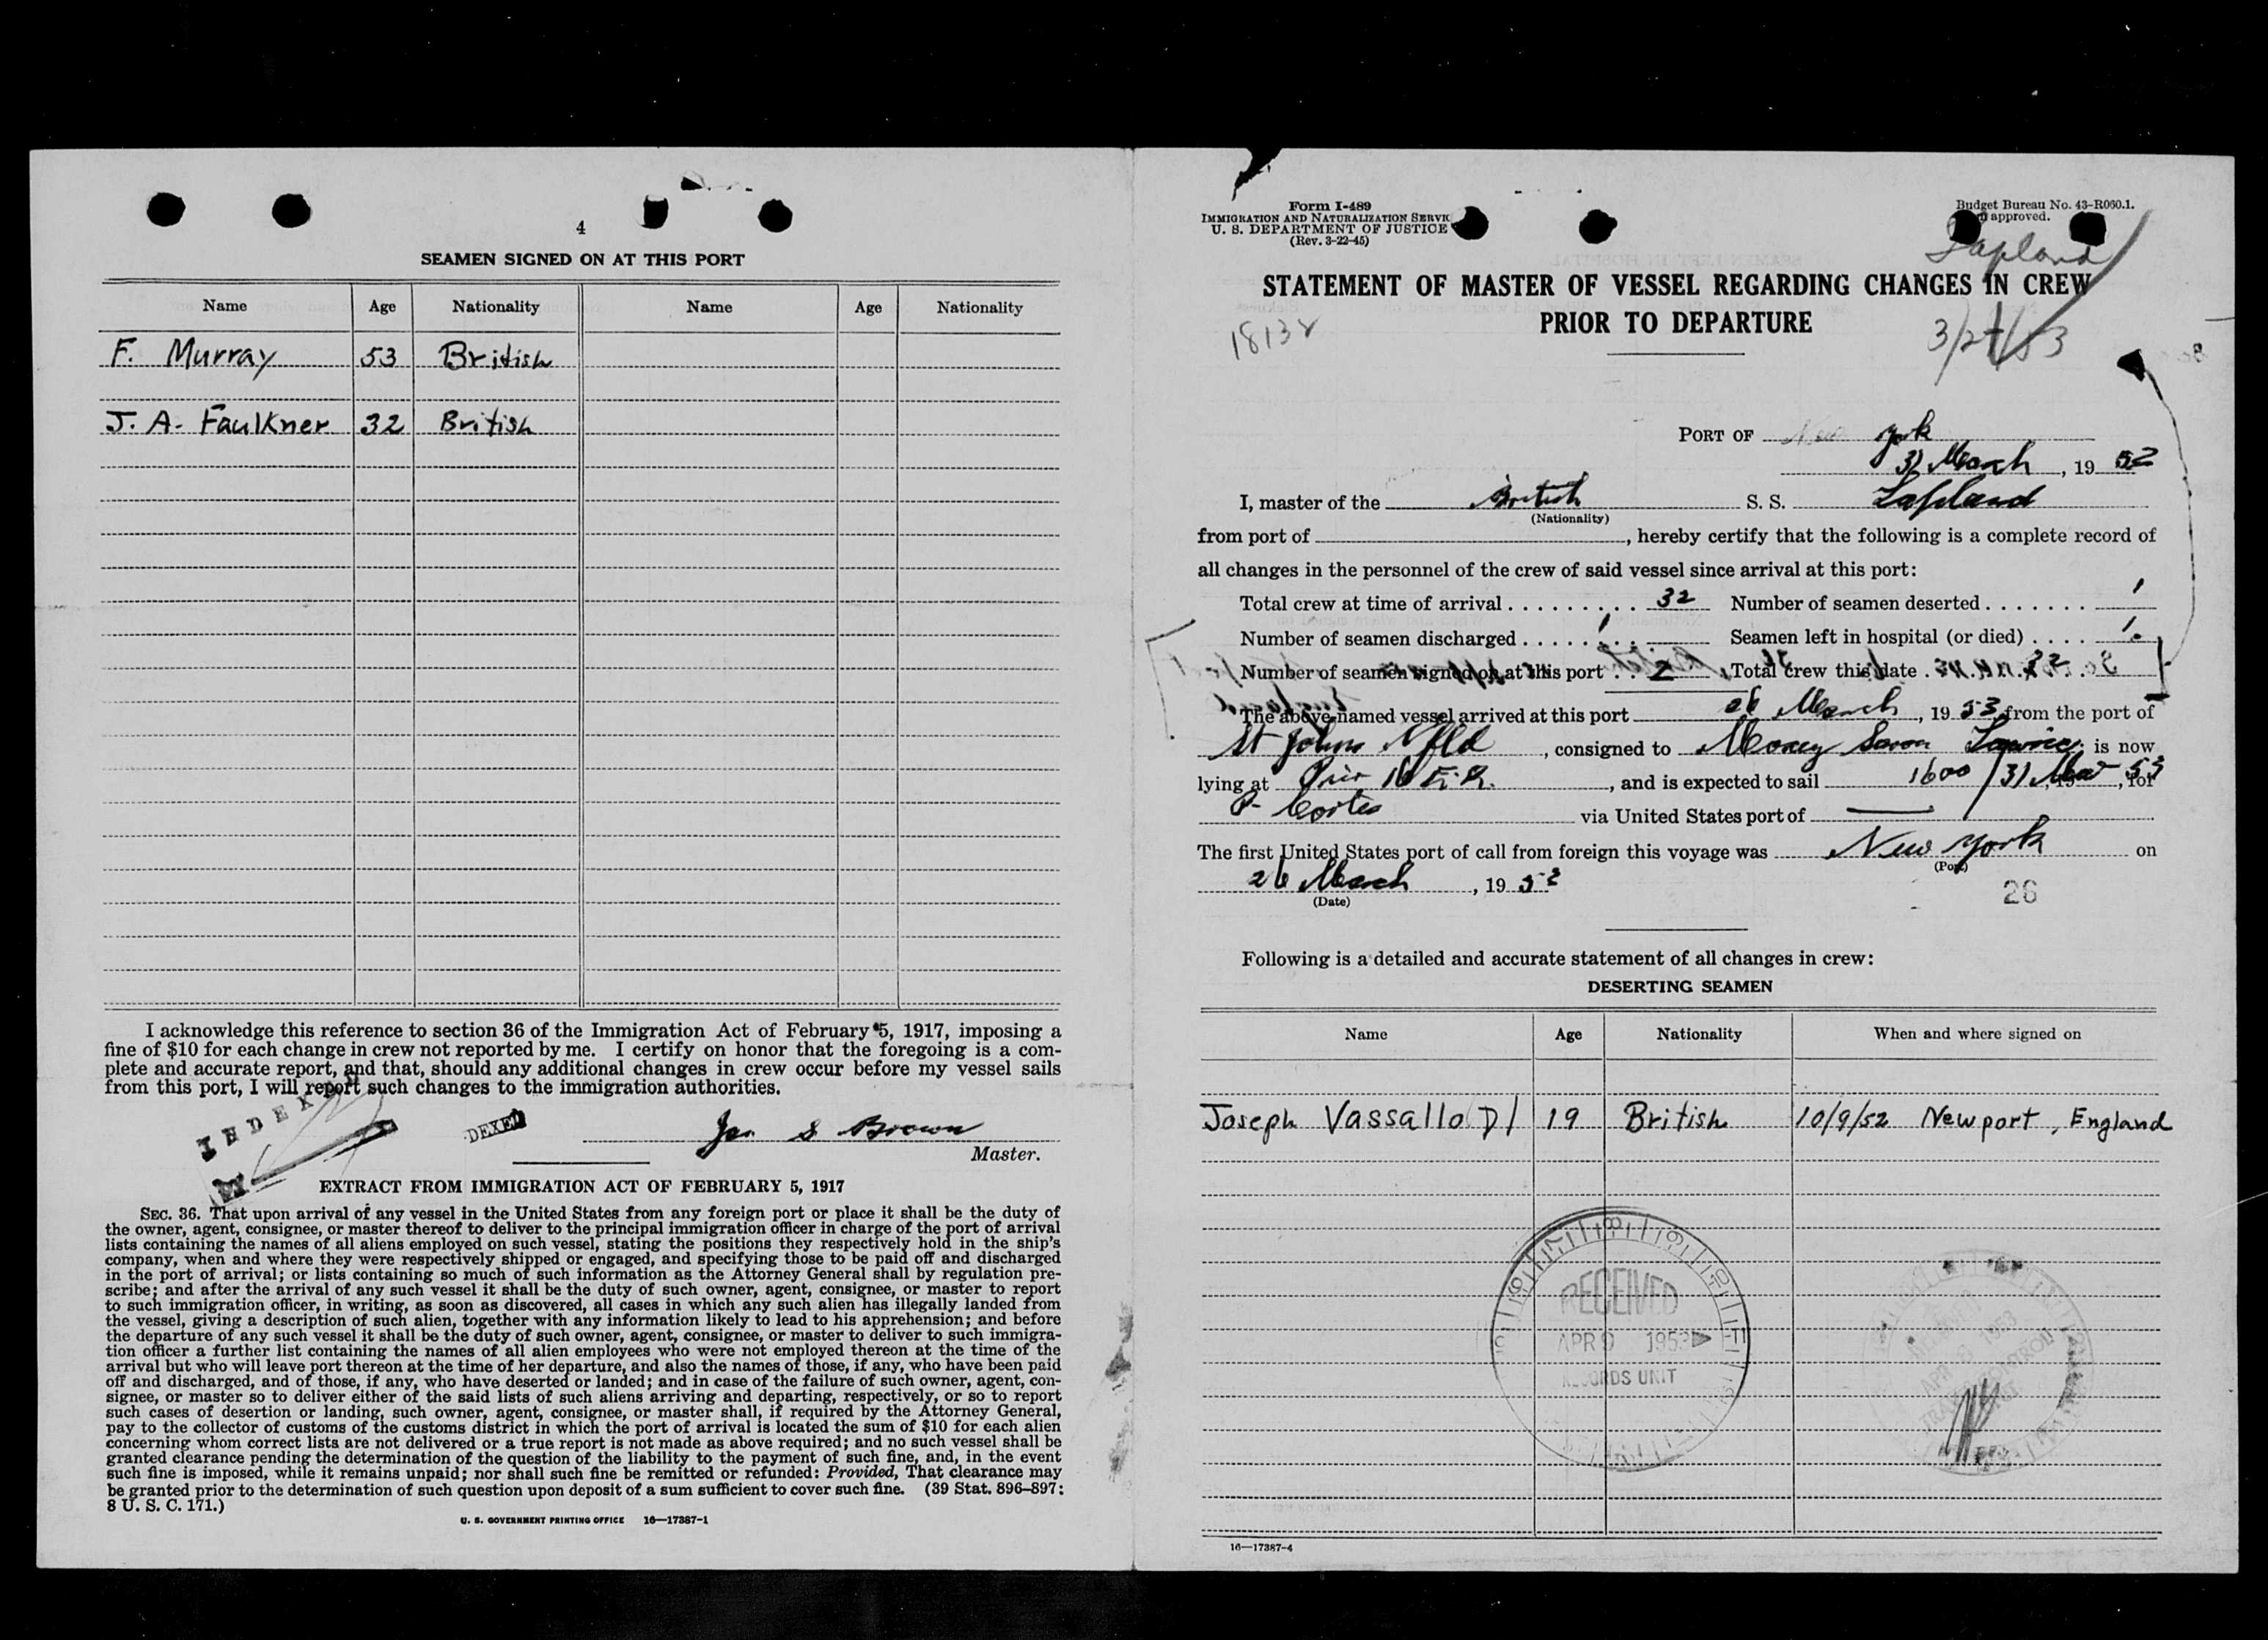 4
SEAMEN SIGNED ON AT THIS PORT
Name Age Nationality Name Age Nationality
F. Murray 53 British
J. A. Faulkner 32 British
I acknowledge this reference to section 36 of the Immigration Act of February 5, 1917, imposing a
fine of $10 for each change in crew not reported by me. I certify on honor that the foregoing is a com-
plete and accurate report, and that, should any additional changes in crew occur before my vessel sails
from this port, I will report such changes to the immigration authorities.
INDEX
DEXED
Jas S Brown
Master.
BY
EXTRACT FROM IMMIGRATION ACT OF FEBRUARY 5, 1917
SEC. 36. That upon arrival of any vessel in the United States from any foreign port or place it shall be the duty of
the owner, agent, consignee, or master thereof to deliver to the principal immigration officer in charge of the port of arrival
lists containing the names of all aliens employed on such vessel, stating the positions they respectively hold in the ship's
company, when and where they were respectively shipped or engaged, and specifying those to be paid off and discharged
in the port of arrival; or lists containing so much of such information as the Attorney General shall by regulation pre-
scribe; and after the arrival of any such vessel it shall be the duty of such owner, agent, consignee, or master to report
to such immigration officer, in writing, as soon as discovered, all cases in which any such alien has illegally landed from
the vessel, giving a description of such alien, together with any information likely to lead to his apprehension; and before
the departure of any such vessel it shall be the duty of such owner, agent, consignee, or master to deliver to such immigra-
tion officer a further list containing the names of all alien employees who were not employed thereon at the time of the
arrival but who will leave port thereon at the time of her departure, and also the names of those, if any, who have been paid
off and discharged, and of those, if any, who have deserted or landed; and in case of the failure of such owner, agent, con-
signee, or master so to deliver either of the said lists of such aliens arriving and departing, respectively, or so to report
such cases of desertion or landing, such owner, agent, consignee, or master shall, if required by the Attorney General,
pay to the collector of customs of the customs district in which the port of arrival is located the sum of $10 for each alien
concerning whom correct lists are not delivered or a true report is not made as above required; and no such vessel shall be
granted clearance pending the determination of the question of the liability to the payment of such fine, and, in the event
such fine is imposed, while it remains unpaid; nor shall such fine be remitted or refunded: Provided, That clearance may
be granted prior to the determination of such question upon deposit of a sum sufficient to cover such fine. (39 Stat. 896–897;
8 U. S. C. 171.)
U. S. GOVERNMENT PRINTING OFFICE 16—17387-1
Form I-489
IMMIGRATION AND NATURALIZATION SERVIC
U. S. DEPARTMENT OF JUSTICE
(Rev. 3-22-45)
Budget Bureau No. 43-R060.1.
approved.
Lapland
STATEMENT OF MASTER OF VESSEL REGARDING CHANGES IN CREW
PRIOR TO DEPARTURE
18138
3/27/53
PORT OF New York
31 March, 19 53
I, master of the British S. S. Lapland
(Nationality)
from port of , hereby certify that the following is a complete record of
all changes in the personnel of the crew of said vessel since arrival at this port:
Total crew at time of arrival 32 Number of seamen deserted 1
Number of seamen discharged 1 Seamen left in hospital (or died) 1.
Number of seamen signed on at this port 2 Total crew this date
The above-named vessel arrived at this port 26 March, 19 53, from the port of
St Johns Nfld, consigned to , is now
lying at Pier 16 E.R., and is expected to sail 1600 / 31 Mar 53, for
P. Cortes via United States port of
The first United States port of call from foreign this voyage was New York on
(Port)
26 March, 19 53
(Date)
26
Following is a detailed and accurate statement of all changes in crew:
DESERTING SEAMEN
Name Age Nationality When and where signed on
Joseph Vassallo D/ 19 British 10/9/52 Newport, England
RECEIVED
APR 9 1953
RECORDS UNIT
16—17387-4